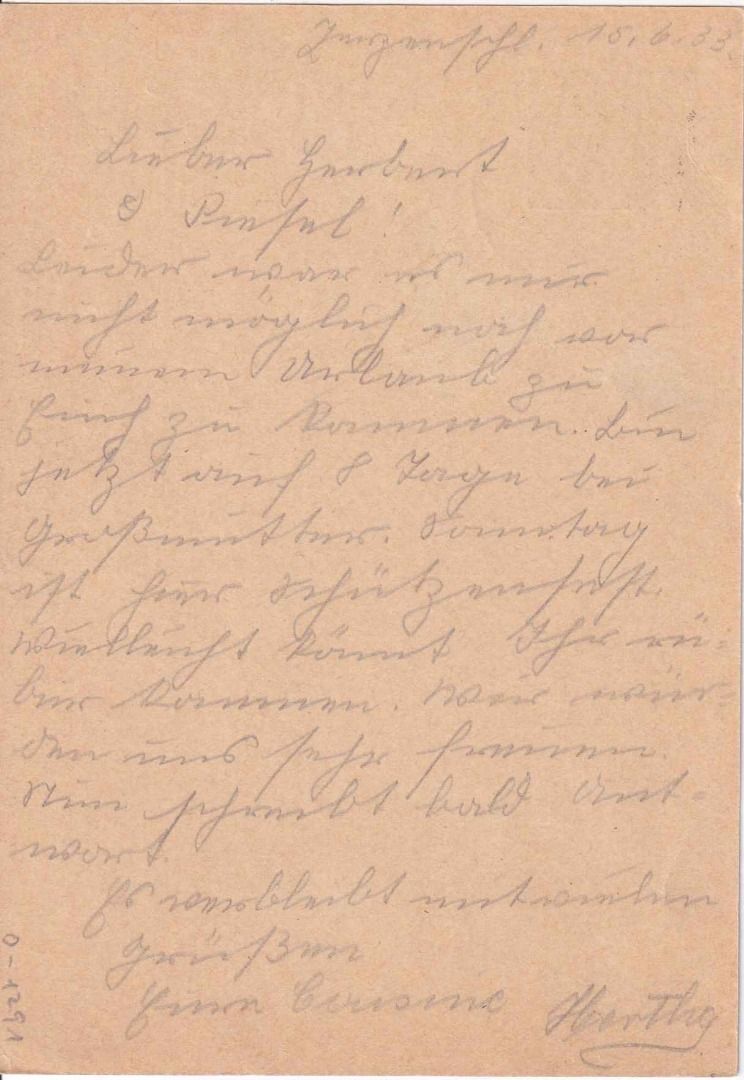 15.6.33.
Lieber Herbert
& Liesel!
Leider war es mir
nicht möglich noch vor
meinem Urlaub zu
Euch zu kommen. Bin
jetzt auf 8 Tage bei
Großmutter. Sonntag
ist hier Schützenfest.
Vielleicht könnt Ihr rü-
ber kommen. Wir wür-
den uns sehr freuen.
Nun schreibt bald Ant-
wort.
Es verbleibt mit vielen
Grüßen
Eure Cousine
0-1291